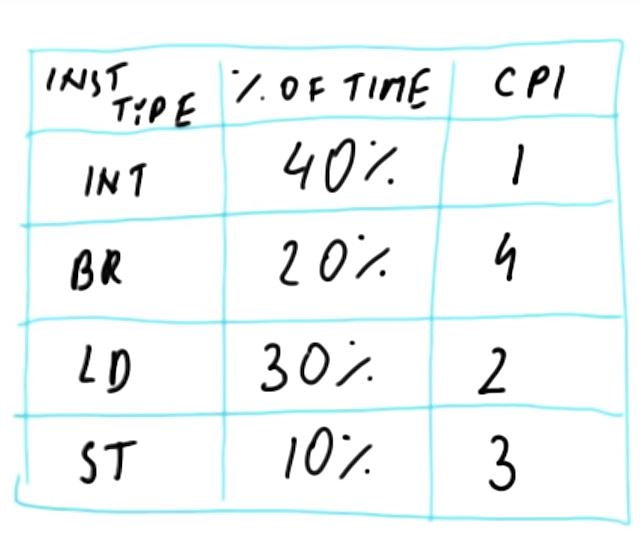 INST TYPE % OF TIME CPI
INT 40% 1
BR 20% 4
LD 30% 2
ST 10% 3